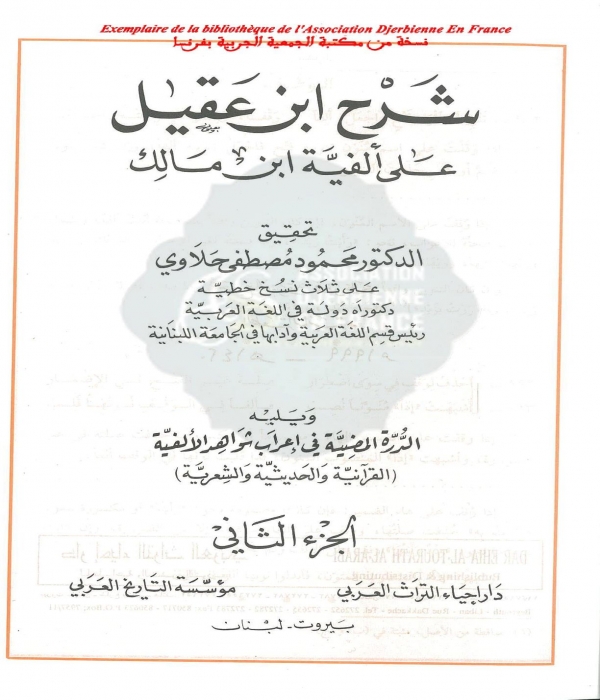 Exemplaire de la bibliothèque de l'Association Djerbienne En France
نسخة من مكتبة الجمعية الجربية بفرنسا
شرح ابن عقيل
على ألفية ابن مالك
تحقيق
الدكتور محمود مصطفى حلاوي
على ثلاث نسخ خطية
دكتوراه دولة في اللغة العربية
رئيس قسم اللغة العربية وآدابها في الجامعة اللبنانية
ويليه
الدرة المضية في إعراب شواهد الألفية
(القرآنية والحديثية والشعرية)
الجزء الثاني
دار إحياء التراث العربي
مؤسسة التاريخ العربي
بيروت - لبنان
ASSOCIATION
DJERBIENNE